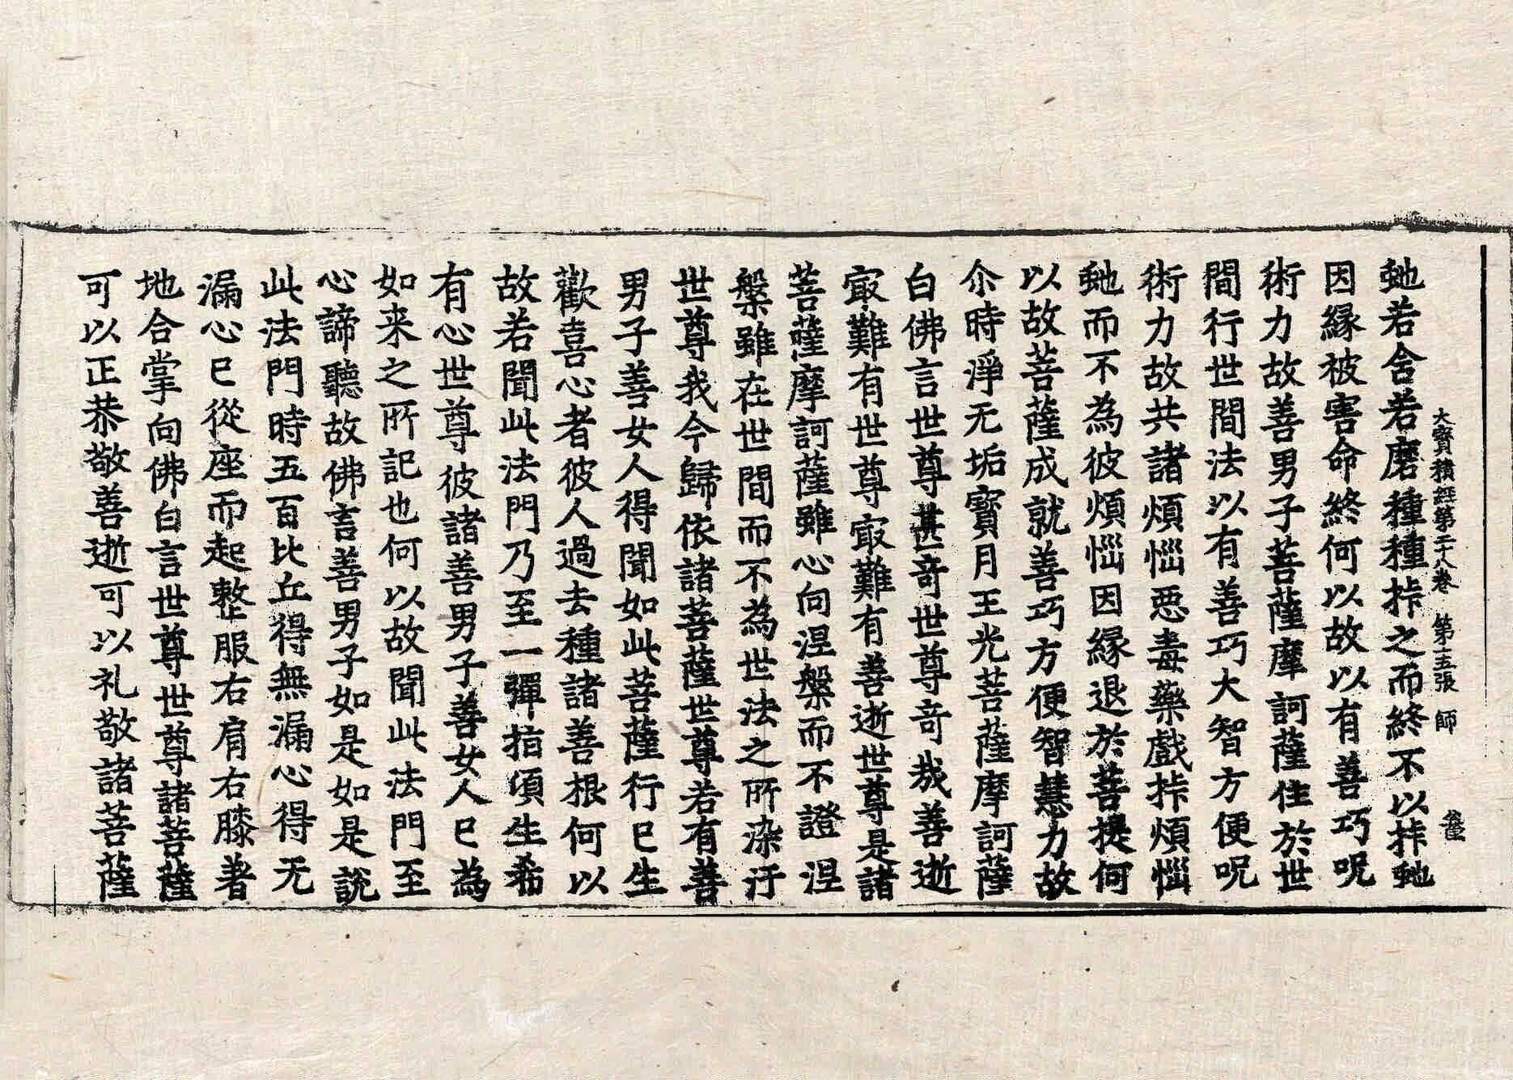 大寶積經第二十八卷 第十五張 師
虵若舍若磨種種㧊之而終不以㧊虵
因緣被害命終何以故以有善巧呪
術力故善男子菩薩摩訶薩住於世
間行世間法以有善巧大智方便呪
術力故共諸煩惱惡毒藥戲㧊煩惱
虵而不為彼煩惱因緣退於菩提何
以故菩薩成就善巧方便智慧力故
尒時淨无垢寶月王光菩薩摩訶薩
白佛言世尊甚奇世尊奇㢤善逝
㝡難有世尊㝡難有善逝世尊是諸
菩薩摩訶薩雖心向涅槃而不證涅
槃雖在世間而不為世法之所染汙
世尊我今歸依諸菩薩世尊若有善
男子善女人得聞如此菩薩行已生
歡喜心者彼人過去種諸善根何以
故若聞此法門乃至一彈指頃生希
有心世尊彼諸善男子善女人已為
如来之所記也何以故聞此法門至
心諦聽故佛言善男子如是如是說
此法門時五百比丘得無漏心得无
漏心已從座而起整服右肩右膝著
地合掌向佛白言世尊世尊諸菩薩
可以正恭敬善逝可以礼敬諸菩薩